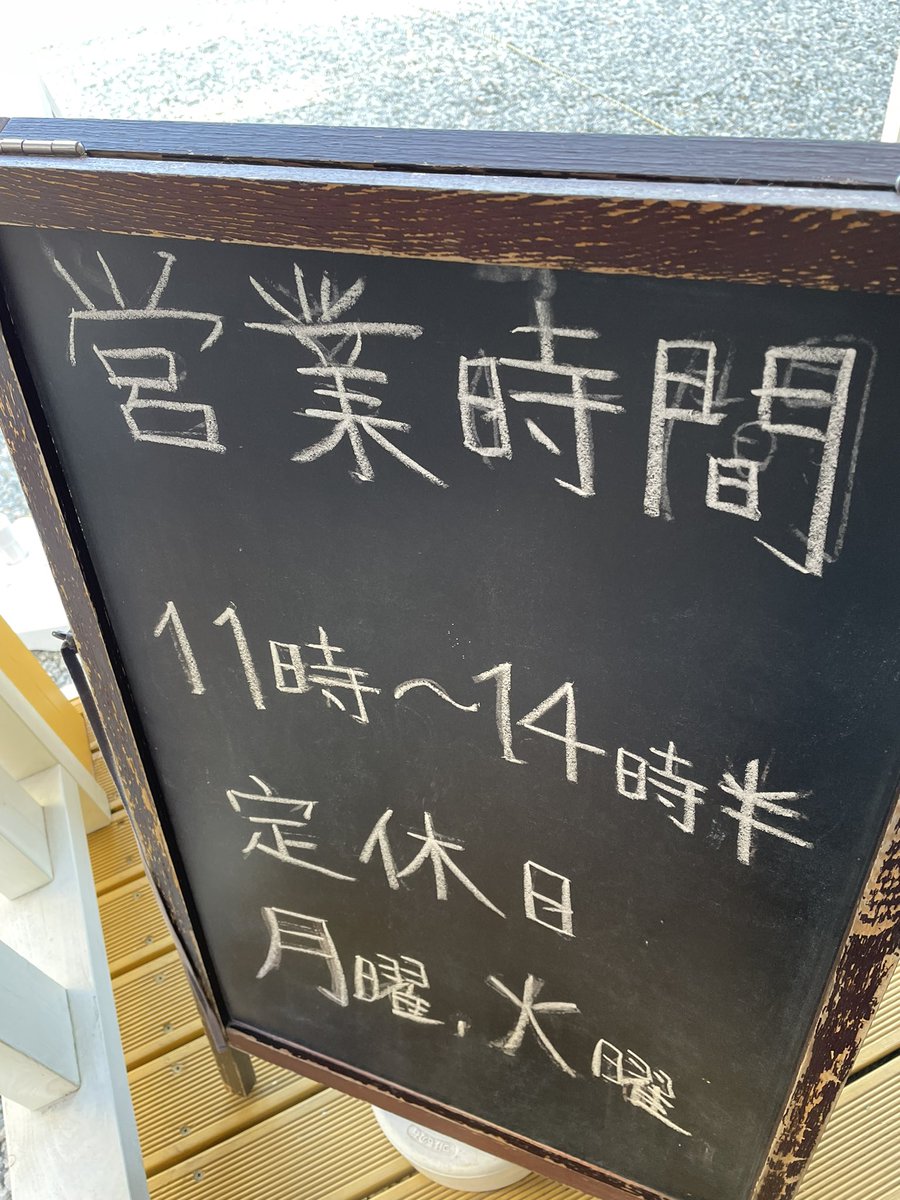 営業時間
11時〜14時半
定休日
月曜、火曜